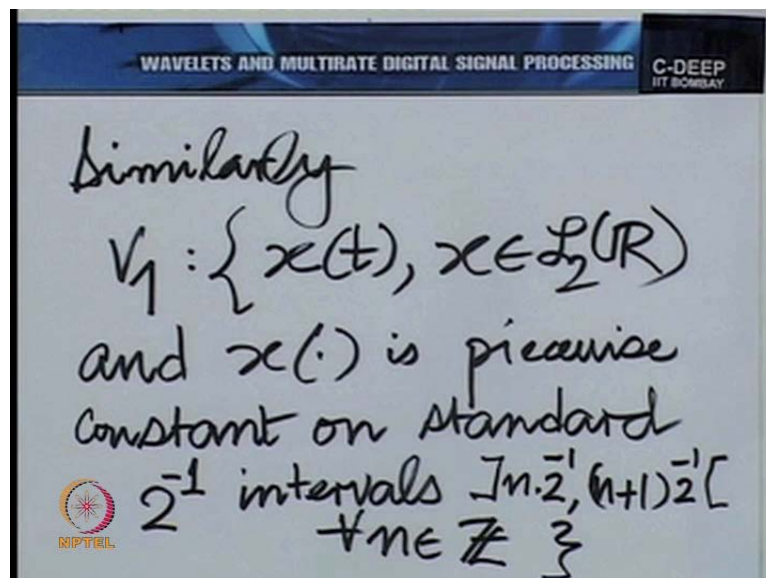 WAVELETS AND MULTIRATE DIGITAL SIGNAL PROCESSING
C-DEEP
IIT BOMBAY
Similarly
V₁ : { x(t), x ∈ ℒ₂(ℝ)
and x(·) is piecewise
constant on standard
2⁻¹ intervals ]n·2⁻¹, (n+1)2⁻¹[
∀n ∈ ℤ }
NPTEL